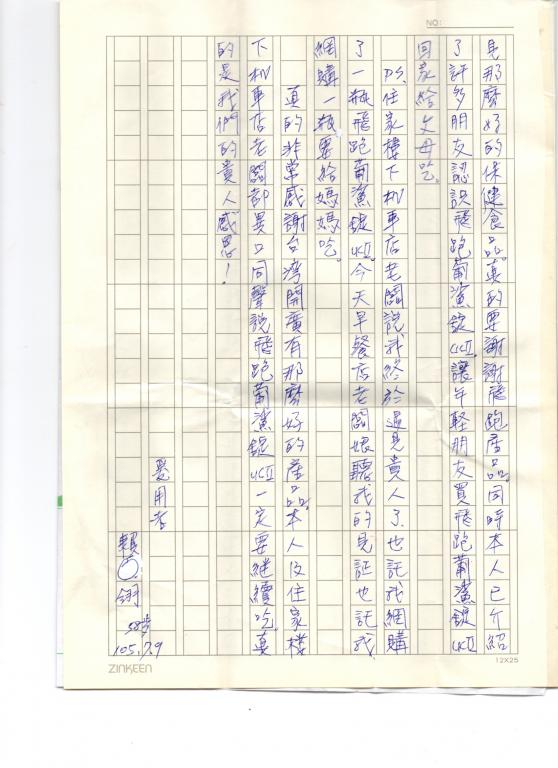 NO:
見那麼好的保健食品。真的要謝謝飛跑產品。同時本人已介紹
了許多朋友認識飛跑葡鯊錠UCII讓年輕朋友買飛跑葡鯊錠UCII
回家給父母吃。
PS.住家樓下机車店老闆說我終於遇見貴人了.也託我網購
了一瓶飛跑葡鯊錠UCII。今天早餐店老闆娘聽我的見証也託我
網購一瓶要給媽媽吃。
真的非常感謝台湾開廣有那麼好的產品。本人及住家樓
下机車店老闆都異口同聲說飛跑葡鯊錠UCII一定要継續吃。真
的是我們的貴人感恩!
愛用者
賴○翎
58歲
105.7.9
ZINKEEN
12X25